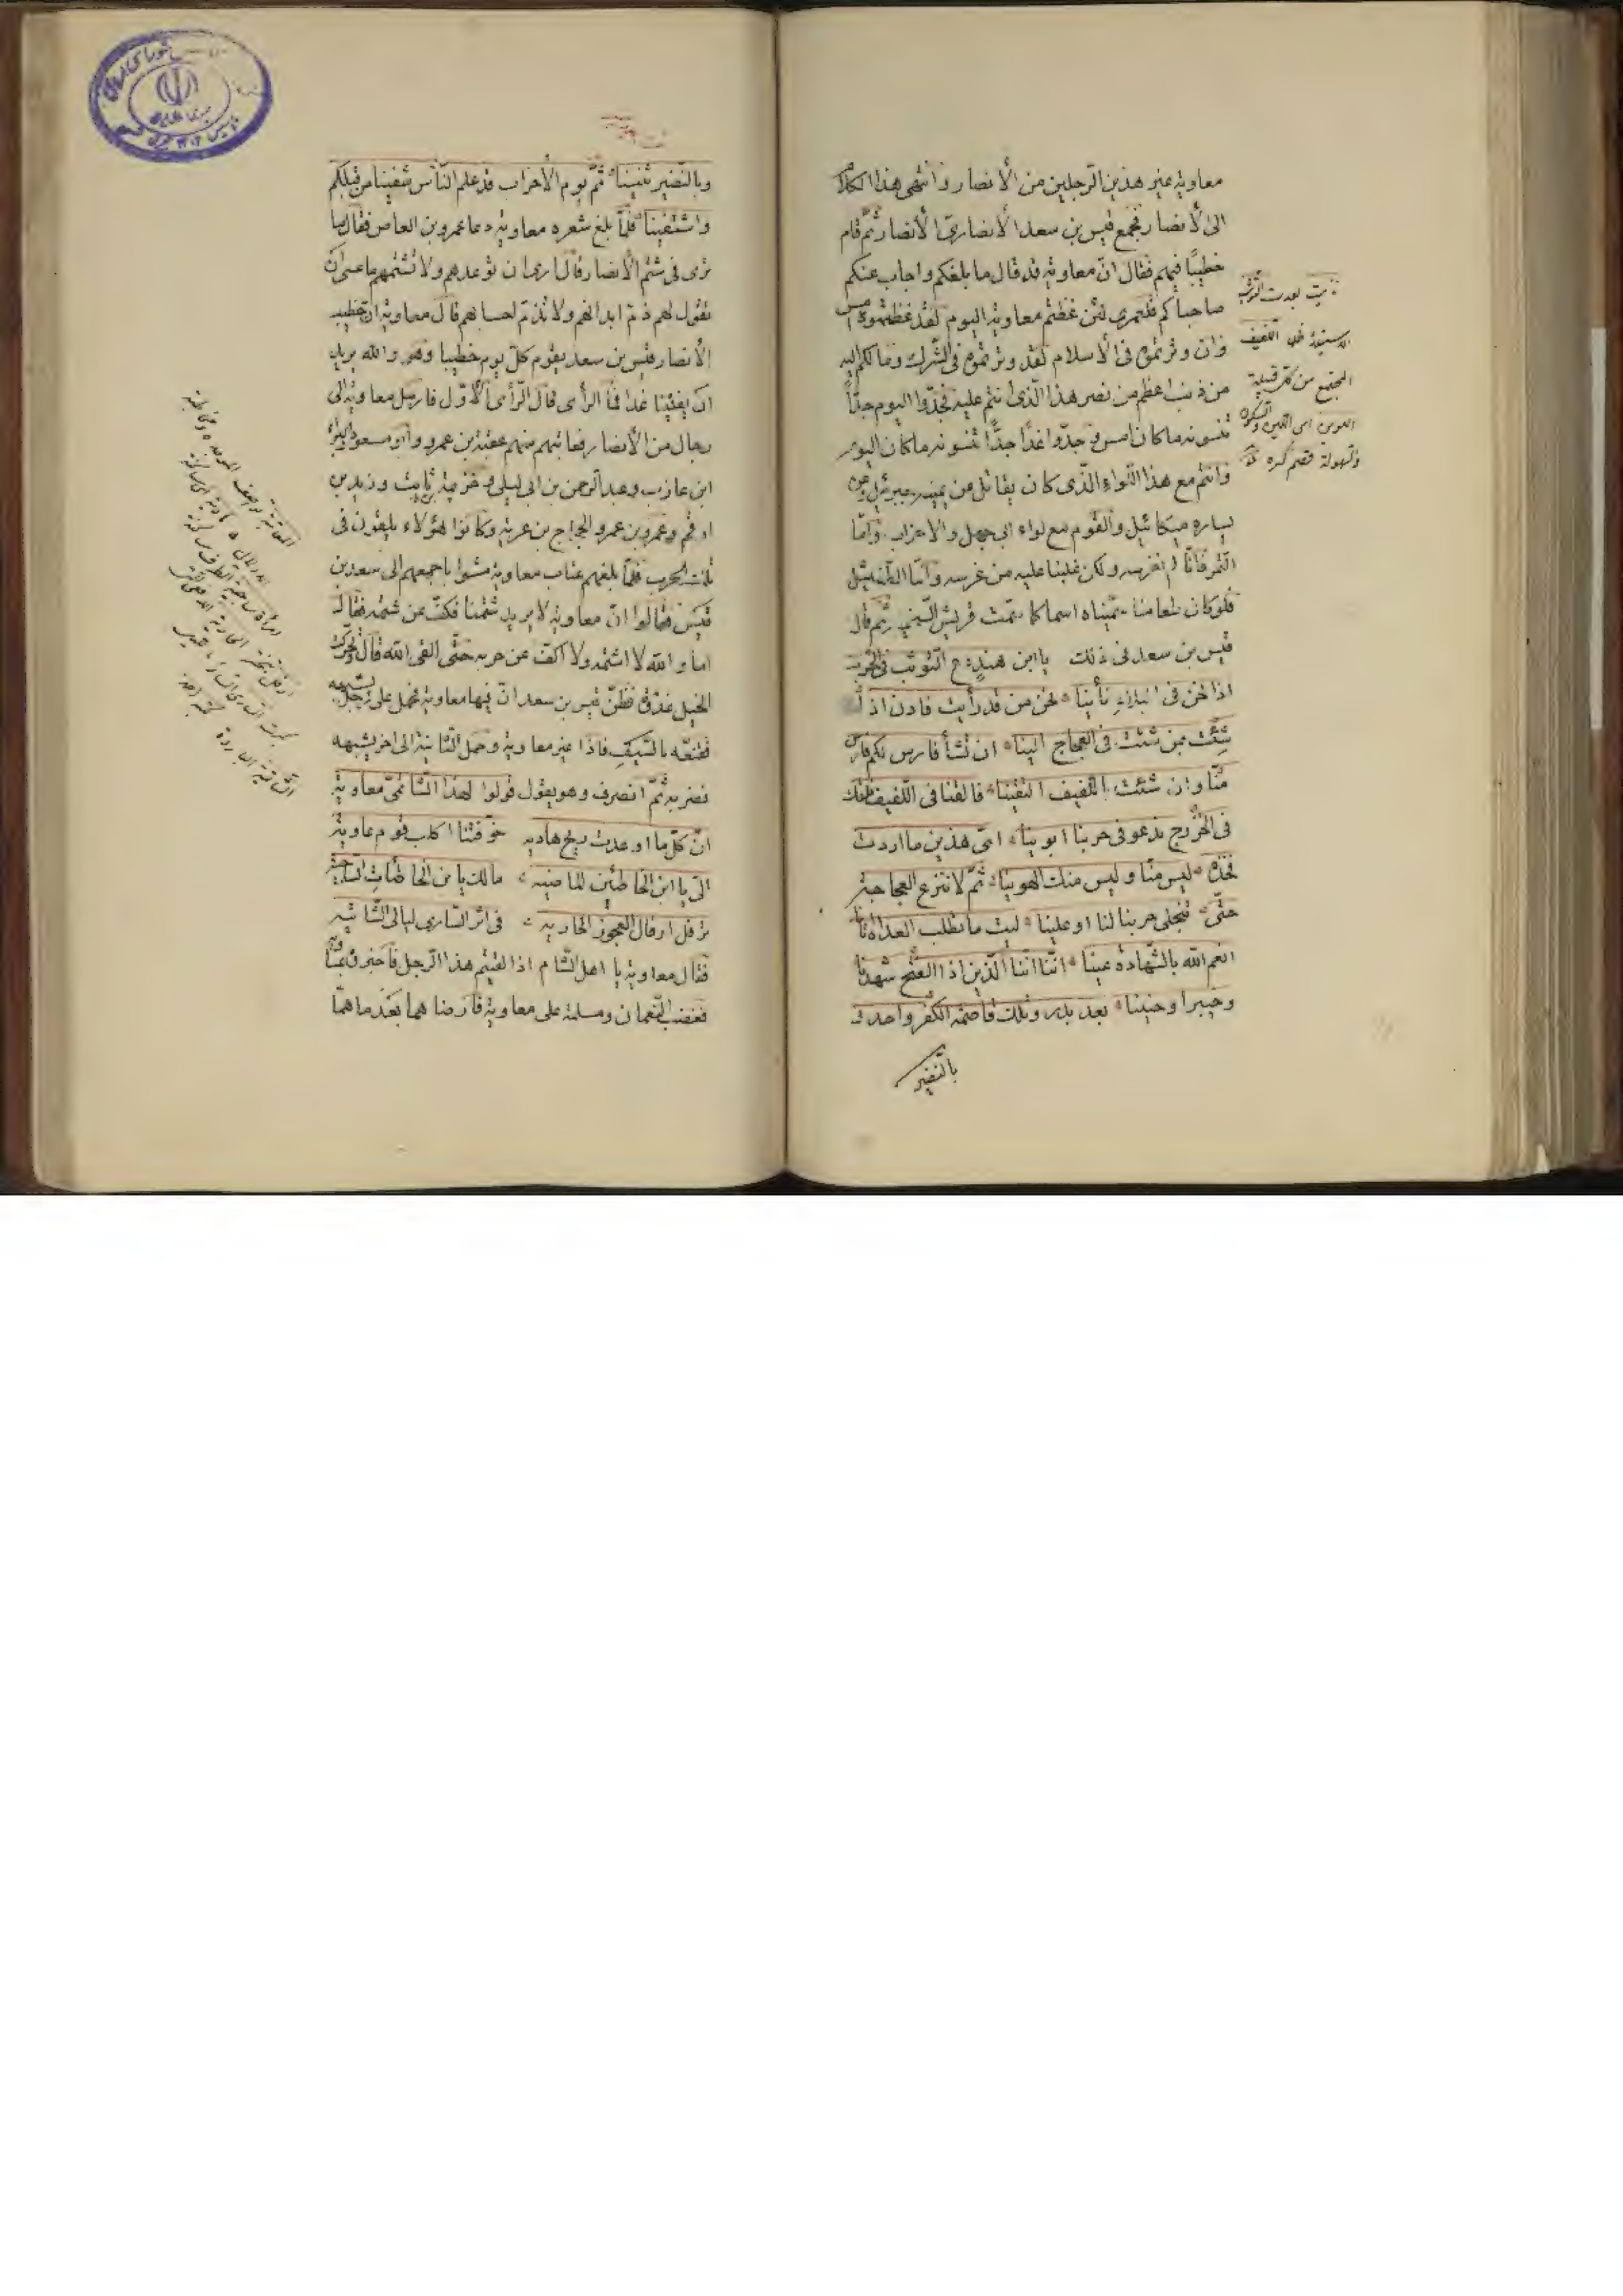 معاوية غير هذين الرجلين من الأنصار وانتهى هذا الكلام
الى الأنصار فجمع قيس بن سعد الأنصاري الأنصار ثم قام
خطيبا فيهم فقال ان معاوية قد قال ما بلغكم واجاب عنكم
صاحباكم فلعمري لئن غظتم معاوية اليوم لقد غظتموه امس
وان وترتموه في الأسلام لقد وترتموه في الشرك وما لكم اليه
من ذنب اعظم من نصر هذا الذي انتم عليه فجدوا اليوم جدا
تنسونه ما كان امس وجدوا غدا جدا تنسونه ما كان اليوم
وانتم مع هذا اللواء الذي كان يقاتل عن يمينه جبرئيل وعن
يساره ميكائيل والقوم مع لواء ابي جهل والاحزاب واما
التمر فانا لم نغرسه ولكن غلبنا عليه من غرسه واما الطفيشل
فلو كان طعامنا سمينا به اسما كما سمت قريش السخينة ثم قال
قيس بن سعد في ذلك يا ابن هند دع التوثب في الحرب
اذا نحن في البلاد نأينا نحن من قد رأيت فادن اذا
شئت بمن شئت في العجاج الينا ان تشأ فارس له فارس
منا وان شئت باللفيف التقينا فالقنا في اللفيف نلقك
في الخزرج ندعو في حربنا ابوينا اي هذين ما اردت
فخذه ليس منا وليس منك الهوينا ثم لا تنزع العجاجة
حتى تنجلي حربنا لنا او علينا ليت ما تطلب الغداة اتانا
انعم الله بالشهادة عينا اننا اننا الذين اذا الفتح شهدنا
وخيبرا وحنينا بعد بدر وتلك قاصمة الكفر واحد و
بالنضير
المجتمع من كل قبيلة
وبالنضير ثنينا ثم يوم الأحزاب قد علم الناس شفينا من قبلكم
واشتفينا فلما بلغ شعره معاوية دعا عمرو بن العاص فقال ما
ترى في شتم الأنصار قال ارى ان توعدهم ولا تشتمهم ما عسى ان
تقول لهم ذم ابدانهم ولا تذم احسابهم قال معاوية ان خطيب
الأنصار قيس بن سعد يقوم كل يوم خطيبا وهو والله يريد
ان يفنينا غدا فما الرأى قال الرأى الأول فارسل معاوية الى
رجال من الأنصار فعاتبهم منهم عقبة بن عمرو وابو مسعود والبراء
ابن عازب وعبد الرحمن بن ابي ليلى وخزيمة بن ثابت وزيد بن
ارقم وعمرو بن عمرو والحجاج بن غزية وكانوا هؤلاء يلقون في
تلك الحرب فلما بلغهم عتاب معاوية مشوا باجمعهم الى سعد بن
قيس فقالوا ان معاوية لا يريد شتمنا فكف عن شتمه فقال
اما والله لا اشتمه ولا اكف عن حربه حتى القى الله قال وتحركت
الخيل غدوة فظن قيس بن سعد ان فيها معاوية فحمل على رجل يشبهه
فقنعه بالسيف فاذا غير معاوية وحمل الثانية الى اخر يشبهه
فضربه ثم انصرف وهو يقول قولوا لهذا الشاتمي معاوية
ان كل ما اوعدت ريح هاوية خوفتنا اكلب قوم عاوية
الي يا ابن الخاطئين الماضية
ترقل ارقال العجوز الحارية في اثر الساري ليالي الشاتية
فقال معاوية يا اهل الشام اذا لقيتم هذا الرجل فاخبروه
فغضب النعمان ومسلمة على معاوية فارضاهما بعد ما هما